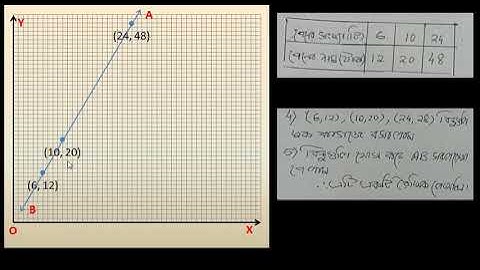 Y
A
(24, 48)
(10, 20)
(6, 12)
B
O
X
পেনের সংখ্যা(টি) 6 10 24
পেনের দাম(টাকা) 12 20 48
4) (6,12), (10,20), (24,28) বিন্দুগুলি
ছক কাগজে বসালাম
5) বিন্দুগুলি যোগ করে AB সরলরেখা
পেলাম
∴ এটি একটি রৈখিক